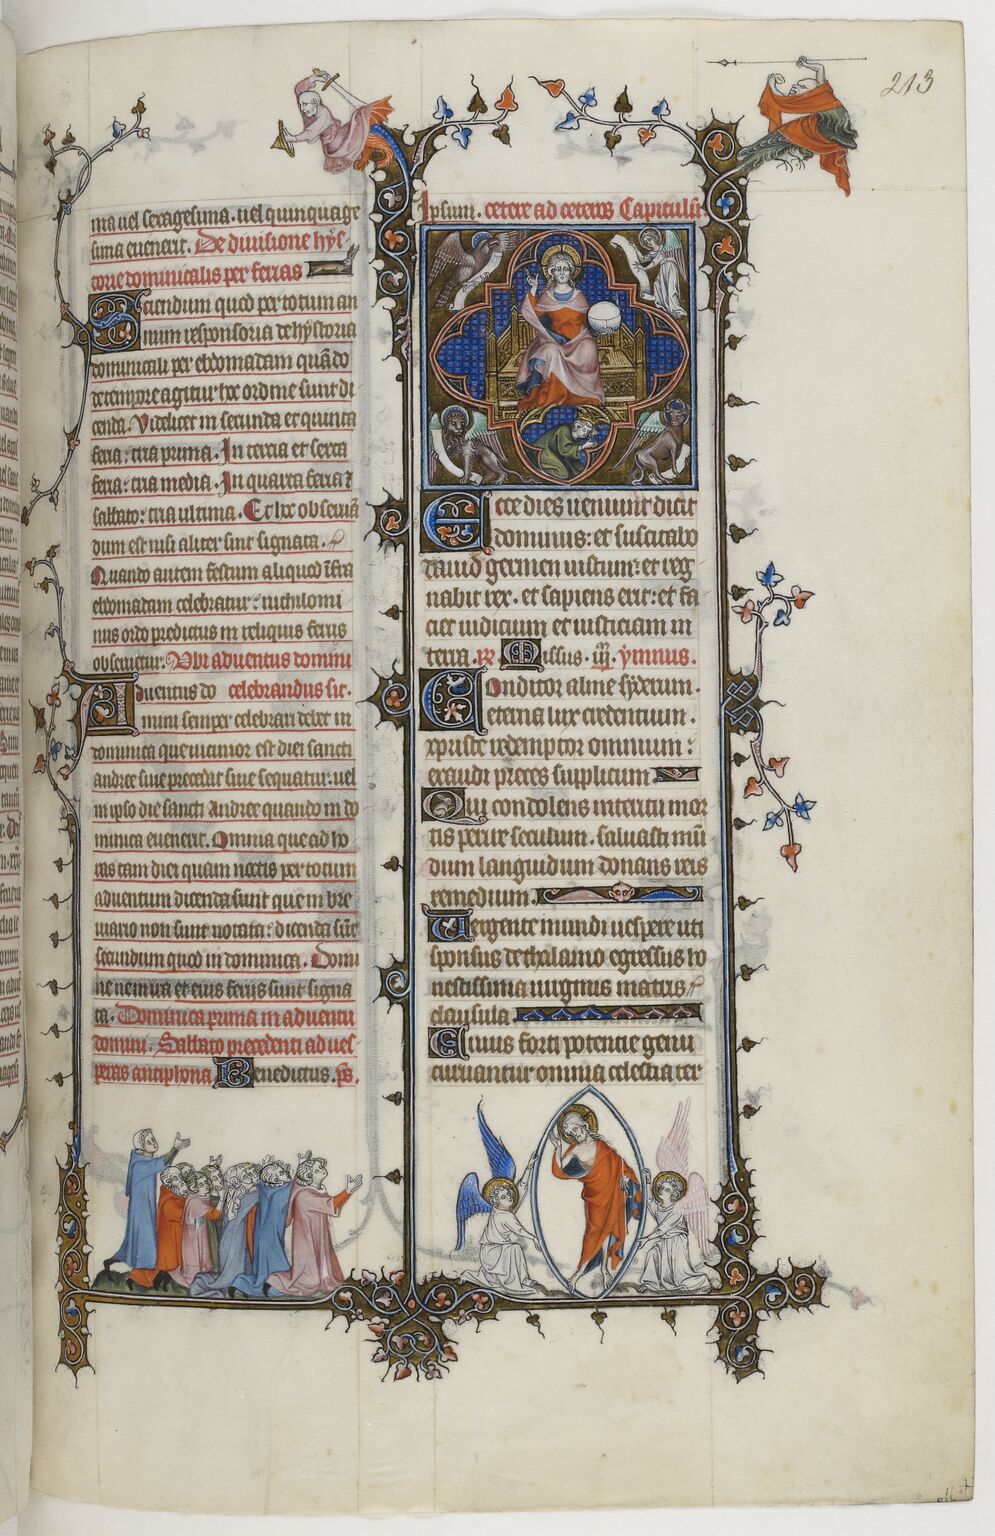 213
ma uel sexagesima. uel quinquage
sima euenerit. De diuisione hys
torie dominicalis per ferias
Sciendum quod per totum an
num responsoria de hystoria
dominicali per ebdomadam quādo
de tempore agitur hec ordine sunt di
cenda. Videlicet in secunda et quinta
feria: tria prima. In tercia et sexta
feria: tria media. In quarta feria ⁊
sabbato: tria ultima. Et hec obseruā
dum est nisi aliter sint signata.
Quando autem festum aliquod īfra
ebdomadam celebratur: nichilomi
nus ordo predictus in reliquis feriis
obseruetur. Vbi aduentus domini
Aduentus do celebrandus sit.
mini semper celebrari debet in
dominica que uicinior est diei sancti
andree siue precedat siue sequatur: uel
in ipso die sancti Andree quando in do
minica euenerit. Omnia que ad ho
ras tam diei quam noctis per totum
aduentum dicenda sunt que in bre
uiario non sunt notata: dicenda sūt
secundum quod in dominica. Domi
ne ne in ira et eius feriis sunt signa
ta. Dominica prima in aduentu
domini. Sabbato precedenti ad ues
peras antiphona Benedictus. ps.
Ipsum. cetere ad ceteros Capitulū.
Ecce dies ueniunt dicit
dominus: et suscitabo
dauid germen iustum: et reg
nabit rex. et sapiens erit: et fa
ciet iudicium et iusticiam in
terra. R Missus. ymnus.
Conditor alme syderum.
eterna lux credentium.
xpriste redemptor omnium:
exaudi preces supplicum
Qui condolens interitu mor
tis perire seculum. saluasti mū
dum languidum donans reis
remedium.
Uergente mundi uespere uti
sponsus de thalamo egressus ho
nestissima uirginis matris
clausula
Cuius forti potentie genu
curuantur omnia celestia ter